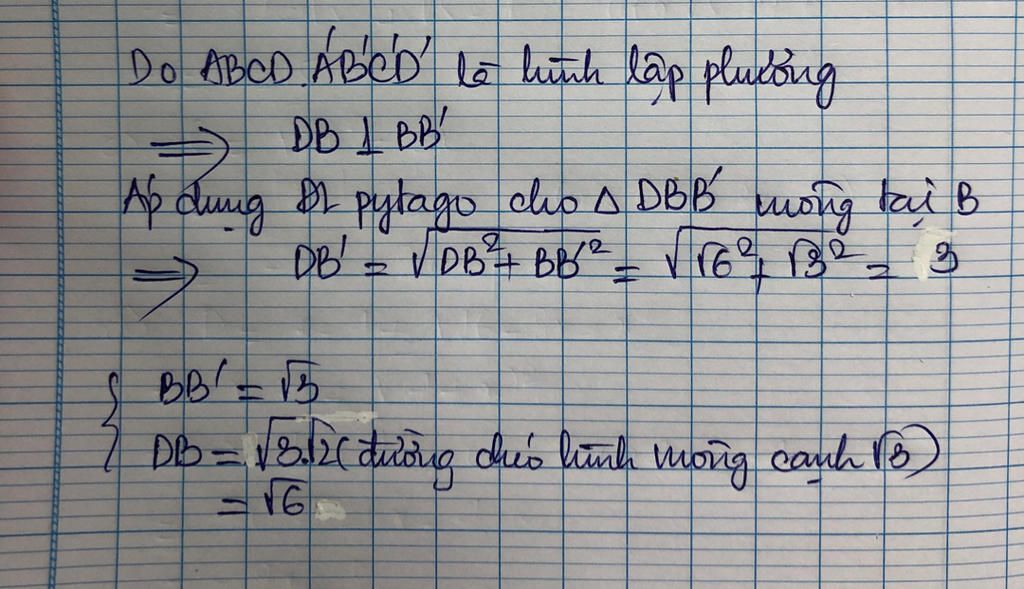 Do ABCD.A'B'C'D' là hình lập phương
⟹ DB ⊥ BB'
Áp dụng ĐL pytago cho Δ DBB' vuông tại B
⟹ DB' = √(DB² + BB'²) = √(√6² + √3²) = 3
{ BB' = √3
DB = √3.√2 (đường chéo hình vuông cạnh √3)
= √6